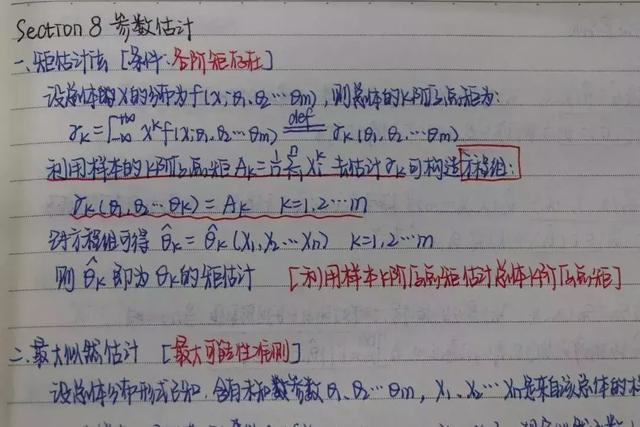 Section 8 参数估计
一、矩估计法 [条件:各阶矩存在]
设总体的X的分布为f(x;θ1,θ2…θm),则总体的k阶原点矩为:
γk=∫_{-∞}^{+∞} x^k f(x;θ1,θ2…θm) ≝ γk(θ1,θ2…θm)
利用样本的k阶原点矩Ak=1/n Σ_{i=1}^{n} Xi^k 去估计γk可构造方程组:
γk(θ1,θ2…θk)=Ak k=1,2…m
解方程组可得 θ̂k=θ̂k(X1,X2…Xn) k=1,2…m
则θ̂k即为θk的矩估计 [利用样本k阶原点矩估计总体k阶原点矩]
二、最大似然估计 [最大可能性准则]
设总体分布形式已知,含有未知数参数θ1,θ2…θm,X1,X2…Xn是来自该总体的样